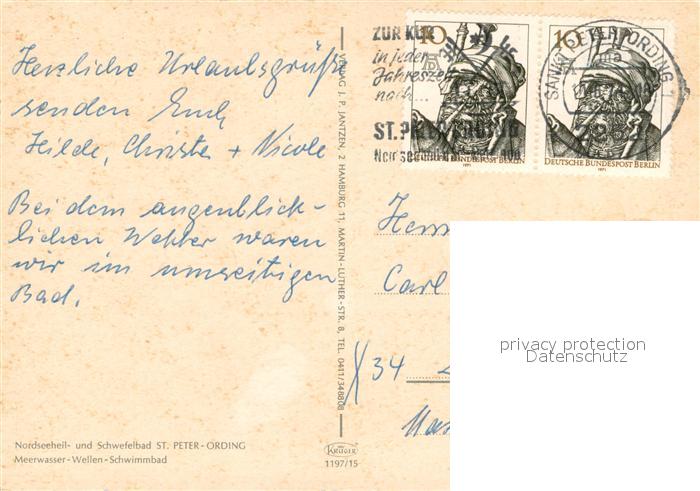 Herzliche Urlaubsgrüße
senden Euch
Hilde, Christa + Nicole
Bei dem augenblick-
lichen Wetter waren
wir im umseitigen
Bad.
Nordseeheil- und Schwefelbad ST. PETER-ORDING
Meerwasser-Wellen-Schwimmbad
VERLAG J. P. JANTZEN, 2 HAMBURG 11, MARTIN-LUTHER-STR. 8, TEL. 0411/348808
KRÜGER
1197/15
ZUR KUR
in jeder
Jahreszeit
nach...
ST. PETER-ORDING
10
10
DEUTSCHE BUNDESPOST BERLIN
1971
1971
SANKT PETER-ORDING 1
Carl
34
privacy protection
Datenschutz